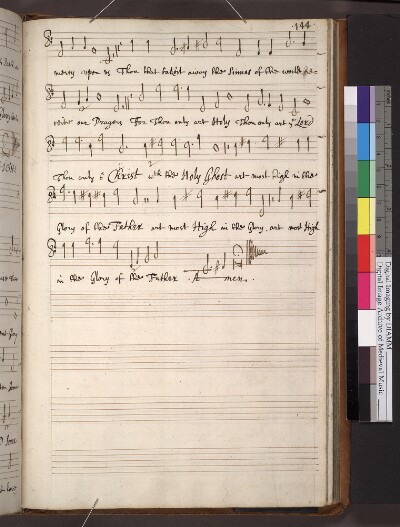 144
mercy upon us Thou that takest away the Sinnes of the world Re=
ceive our Prayer For Thou only art Holy Thou only art ye Lord
Thou only ô Christ wth the Holy Ghost art most high in the
Glory of the Father art most High in the Glory, art most High
in the Glory of the Father A men.
Digital Imaging by DIAMM
Digital Image Archive of Medieval Music